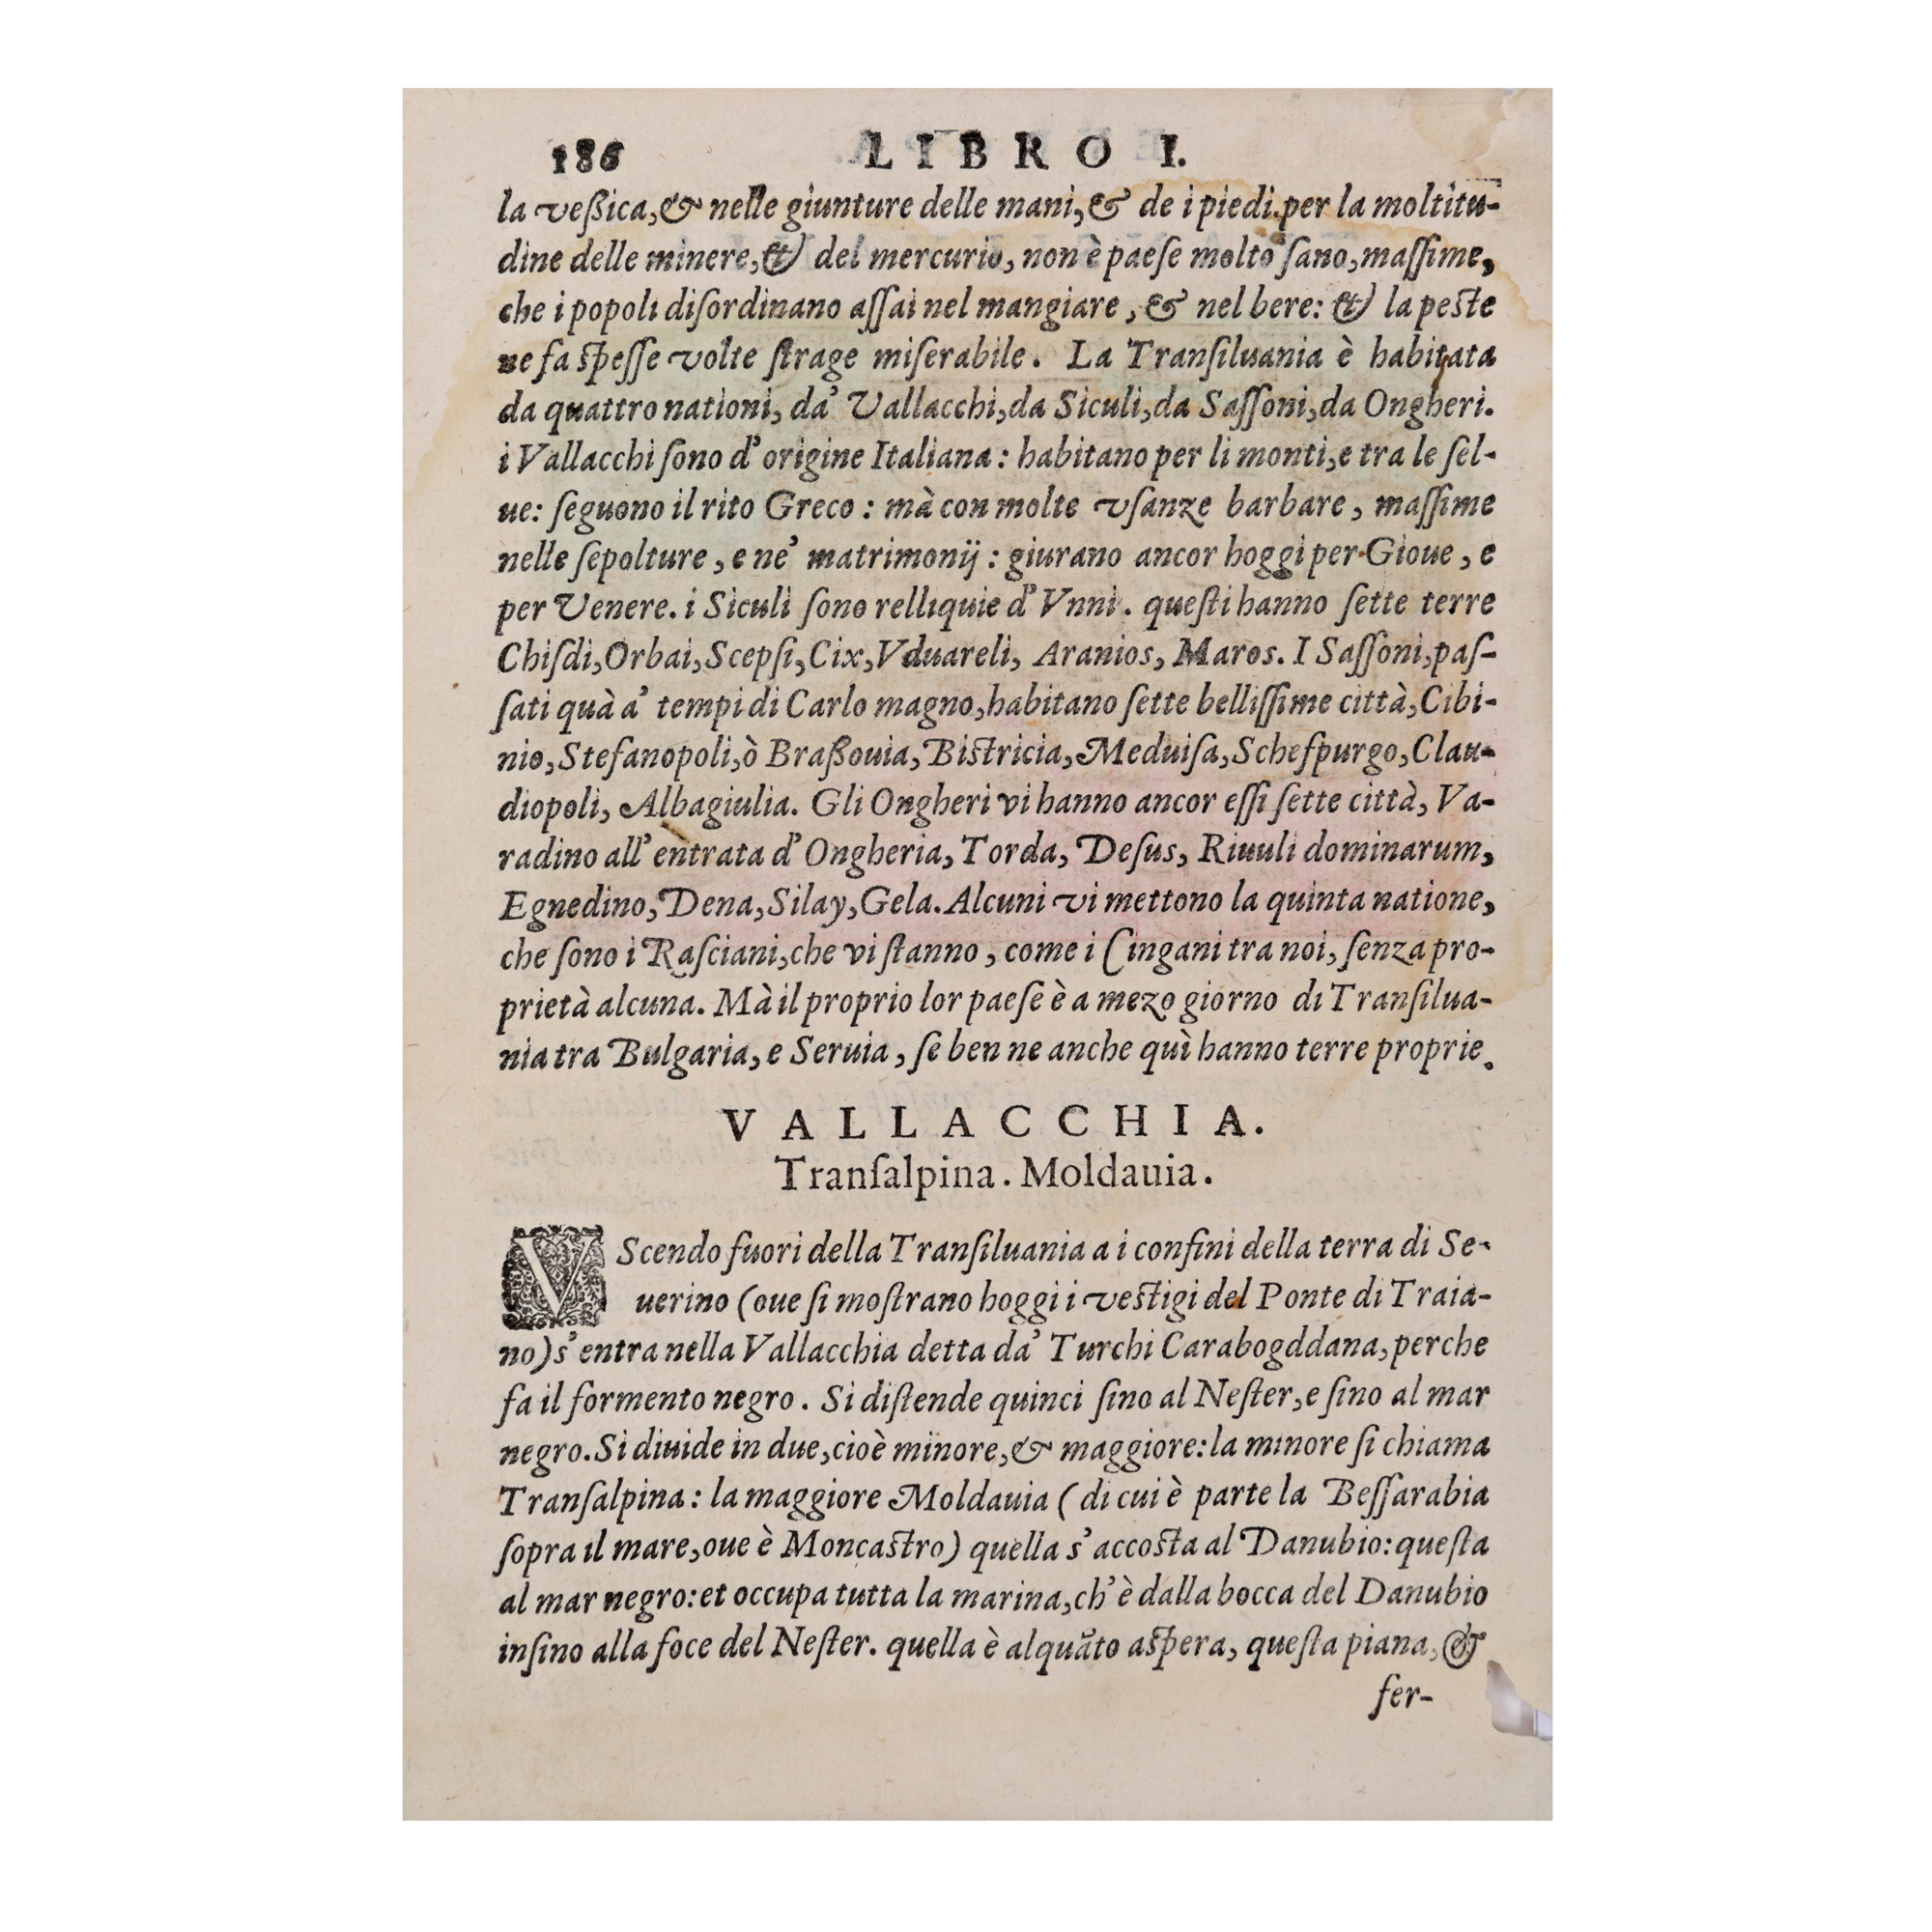 186 LIBRO I.
la veßica,& nelle giunture delle mani,& de i piedi.per la moltitu-
dine delle minere,& del mercurio, non è paese molto ſano,maſſime,
che i popoli diſordinano aſſai nel mangiare ,& nel bere: & la peste
ne fa speſſe volte ſtrage miſerabile. La Tranſiluania è habitata
da quattro nationi, da' Vallacchi,da Siculi,da Saſſoni,da Ongheri.
i Vallacchi ſono d'origine Italiana : habitano per li monti,e tra le ſel-
ue: ſeguono il rito Greco : mà con molte vſanze barbare , maſſime
nelle ſepolture , e ne' matrimonij : giurano ancor hoggi per Gioue , e
per Venere. i Siculi ſono relliquie d'Vnni. queſti hanno ſette terre
Chiſdi,Orbai,Scepſi,Cix,Vduareli, Aranios, Maros. I Saſſoni,paſ-
ſati quà a' tempi di Carlo magno,habitano ſette belliſſime città,Cibi-
nio,Stefanopoli,ò Braßouia,Bistricia,Meduiſa,Scheſpurgo,Clau-
diopoli, Albagiulia. Gli Ongheri vi hanno ancor eſſi ſette città, Va-
radino all'entrata d'Ongheria, Torda, Deſus, Riuuli dominarum,
Egnedino,Dena,Silay,Gela.Alcuni vi mettono la quinta natione,
che ſono i Raſciani,che vi ſtanno , come i Cingani tra noi, ſenza pro-
prietà alcuna. Mà il proprio lor paeſe è a mezo giorno di Tranſilua-
nia tra Bulgaria, e Seruia , ſe ben ne anche quì hanno terre proprie.
VALLACCHIA.
Tranſalpina. Moldauia.
VScendo fuori della Tranſiluania a i confini della terra di Se-
uerino (oue ſi moſtrano hoggi i vestigi del Ponte di Traia-
no)s'entra nella Vallacchia detta da' Turchi Carabogddana,perche
fa il formento negro. Si diſtende quinci ſino al Neſter,e ſino al mar
negro.Si diuide in due,cioè minore,& maggiore:la minore ſi chiama
Tranſalpina: la maggiore Moldauia ( di cui è parte la Beſſarabia
ſopra il mare,oue è Moncastro) quella s'accosta al Danubio:queſta
al mar negro:et occupa tutta la marina,ch'è dalla bocca del Danubio
inſino alla foce del Neſter. quella è alquãto aspera, queſta piana,&
fer-